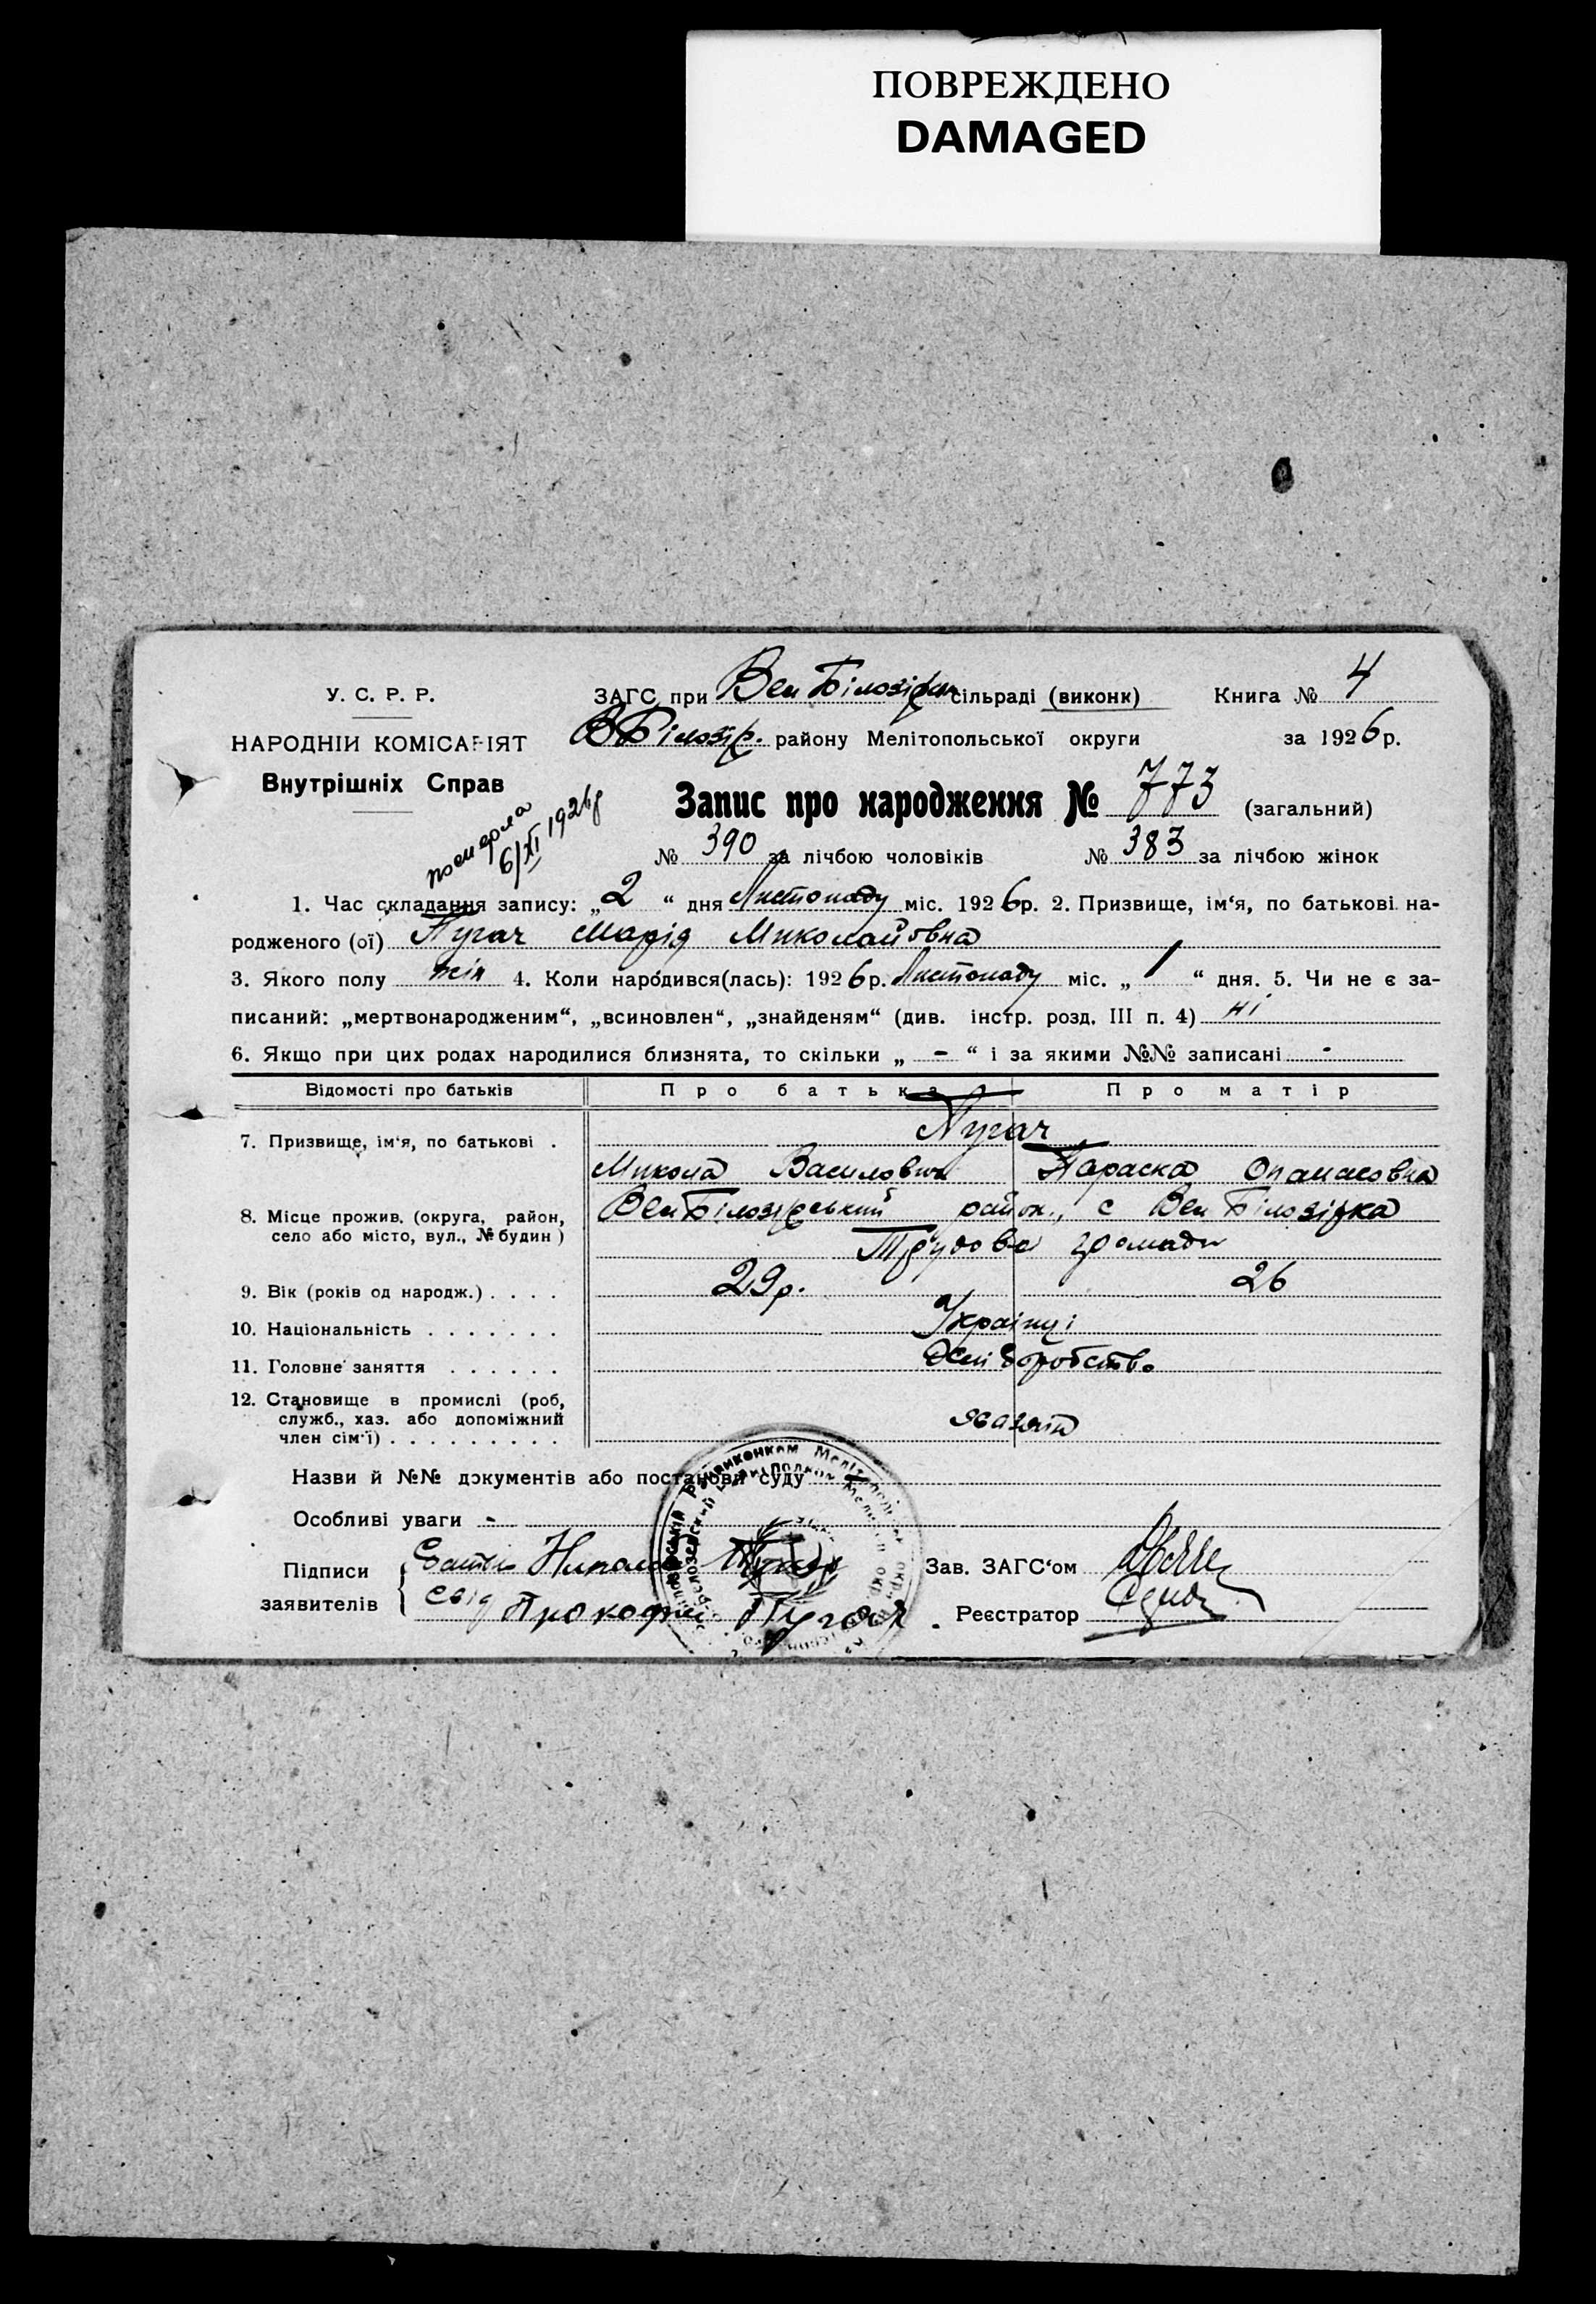 ПОВРЕЖДЕНО
DAMAGED
У. С. Р. Р.
НАРОДНІЙ КОМІСАРІЯТ
Внутрішніх Справ
ЗАГС при Вел Білозірськ сільраді (виконк) Книга № 4
В Білозір. району Мелітопольської округи за 1926 р.
Запис про народження № 773 (загальний)
померла
6/XI 1926 р
№ 390 за лічбою чоловіків № 383 за лічбою жінок
1. Час складання запису: „2“ дня Листопаду міс. 1926 р. 2. Призвище, ім‘я, по батькові на-
родженого (ої) Пугач Марія Миколайовна
3. Якого полу жін 4. Коли народився(лась): 1926 р. Листопаду міс. „1“ дня. 5. Чи не є за-
писаний: „мертвонародженим“, „всиновлен“, „знайденям“ (див. інстр. розд. III п. 4) ні
6. Якщо при цих родах народилися близнята, то скільки „ - “ і за якими №№ записані -
Відомості про батьків Про батька Про матір
7. Призвище, ім‘я, по батькові . Пугач
Микола Василович Параска Опанасовна
8. Місце прожив. (округа, район,
село або місто, вул., № будин)
Вел Білозірський район., с Вел Білозірка
Трудова громада
9. Вік (років од народж.) . . . . 29 р. 26
10. Національність . . . . . . . Українці
11. Головне заняття . . . . . . Хліборобство
12. Становище в промислі (роб,
служб., хаз. або допоміжний
член сім‘ї) . . . . . . . . . хазяїн
Назви й №№ документів або постанови суду
Особливі уваги -
Підписи
заявителів
Батько Николай Пугач
Свід Прокофий Пугач.
Зав. ЗАГС‘ом
Реєстратор